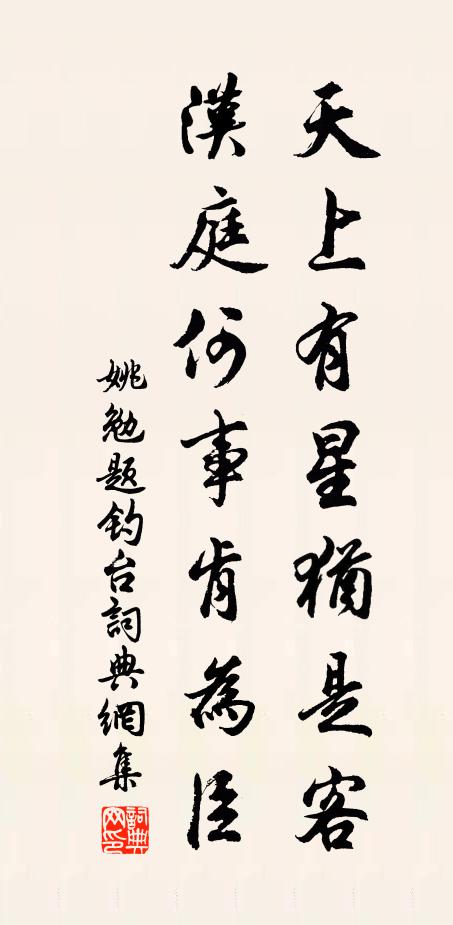 天上有星猶是客
漢庭何事肯為臣
姚勉題釣台詞典網集
詞典網印